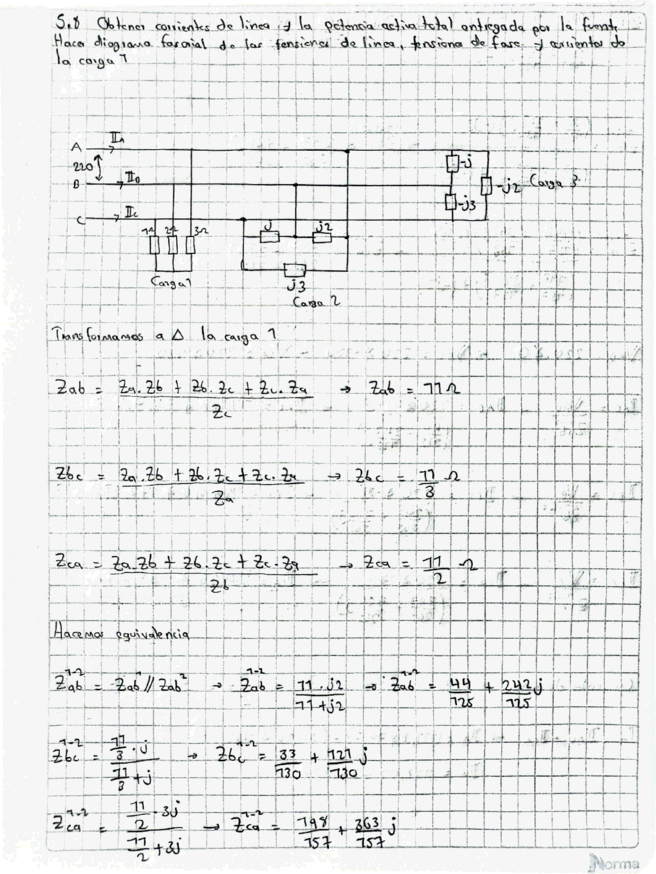 5.8 Obtener corrientes de linea y la potencia activa total entregada por la fuente.
Hacer diagrama fasorial de las tensiones de linea, tensiona de fase y corrientes de
la carga 1
A IA
220
B IB
C IC
1Ω 2Ω 3Ω
Carga 1
j j2
j3
Carga 2
-j
-j3
-j2 Carga 3
Transformamos a Δ la carga 1
Zab = Za.Zb + Zb.Zc + Zc.Za / Zc → Zab = 11 Ω
Zbc = Za.Zb + Zb.Zc + Zc.Za / Za → Zbc = 11/3 Ω
Zca = Za.Zb + Zb.Zc + Zc.Za / Zb → Zca = 11/2 Ω
Hacemos equivalencia
Zab¹⁻² = Zab¹ // Zab² → Zab¹⁻² = 11.j2 / 11+j2 → Zab¹⁻² = 44/125 + 242/125 j
Zbc¹⁻² = 11/3 . j / 11/3 + j → Zbc¹⁻² = 33/130 + 121/130 j
Zca¹⁻² = 11/2 . 3j / 11/2 + 3j → Zca¹⁻² = 198/157 + 363/157 j
Norma